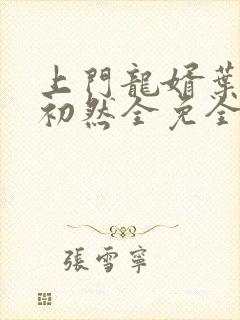 上門龍婿葉
初然全免全
張雪寧